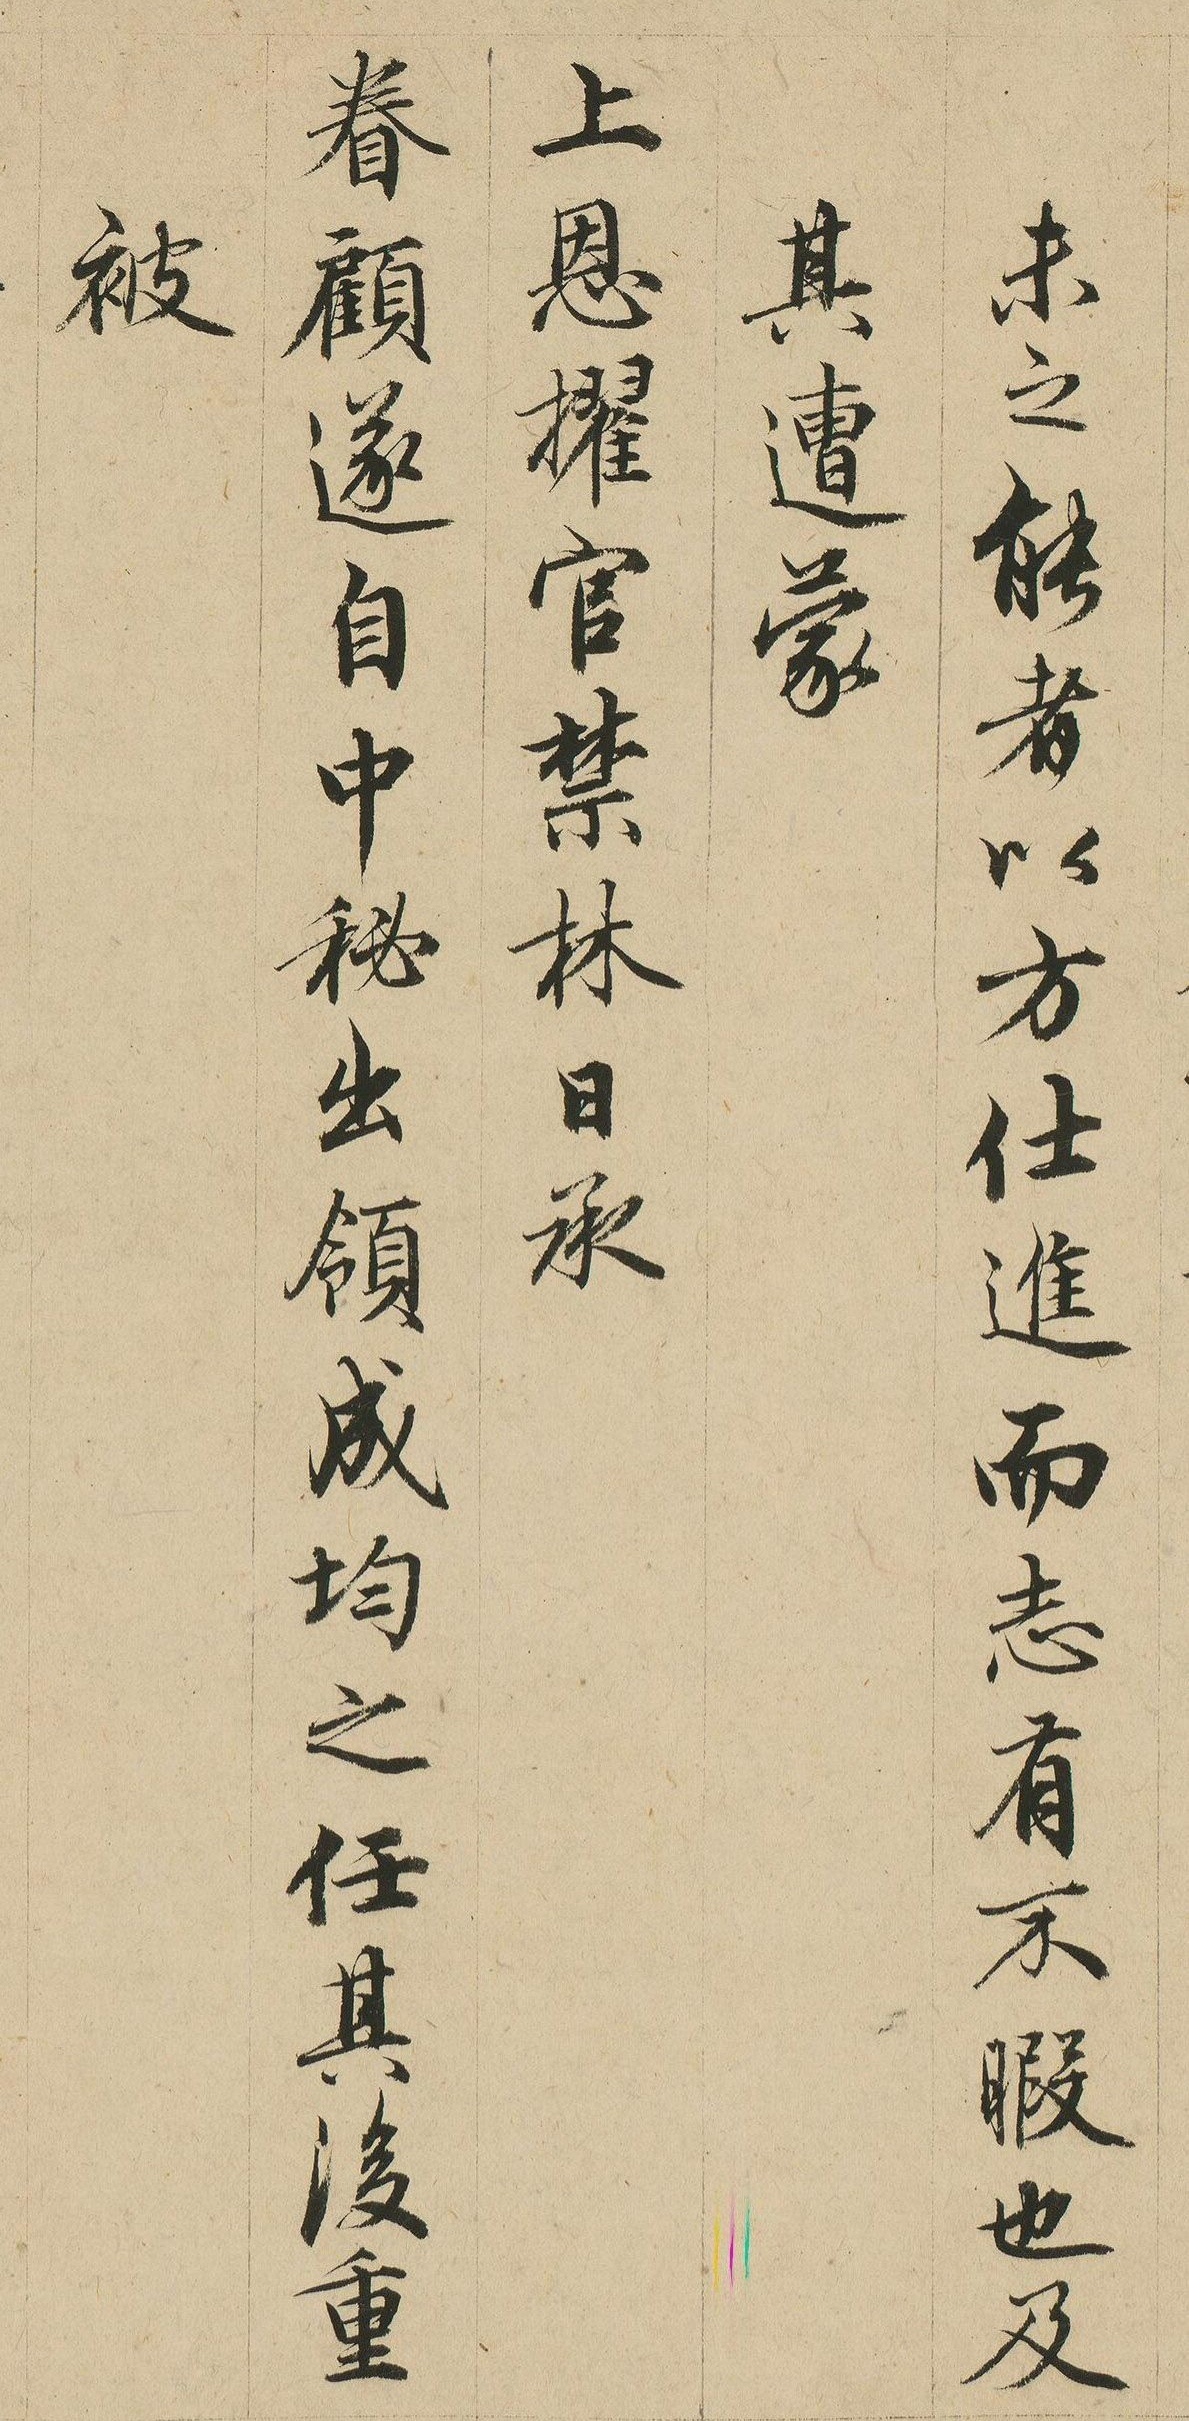 未之能者以方仕進而志有不暇也及
其遭蒙
上恩擢官禁林日承
眷顧遂自中秘出領成均之任其後重
被